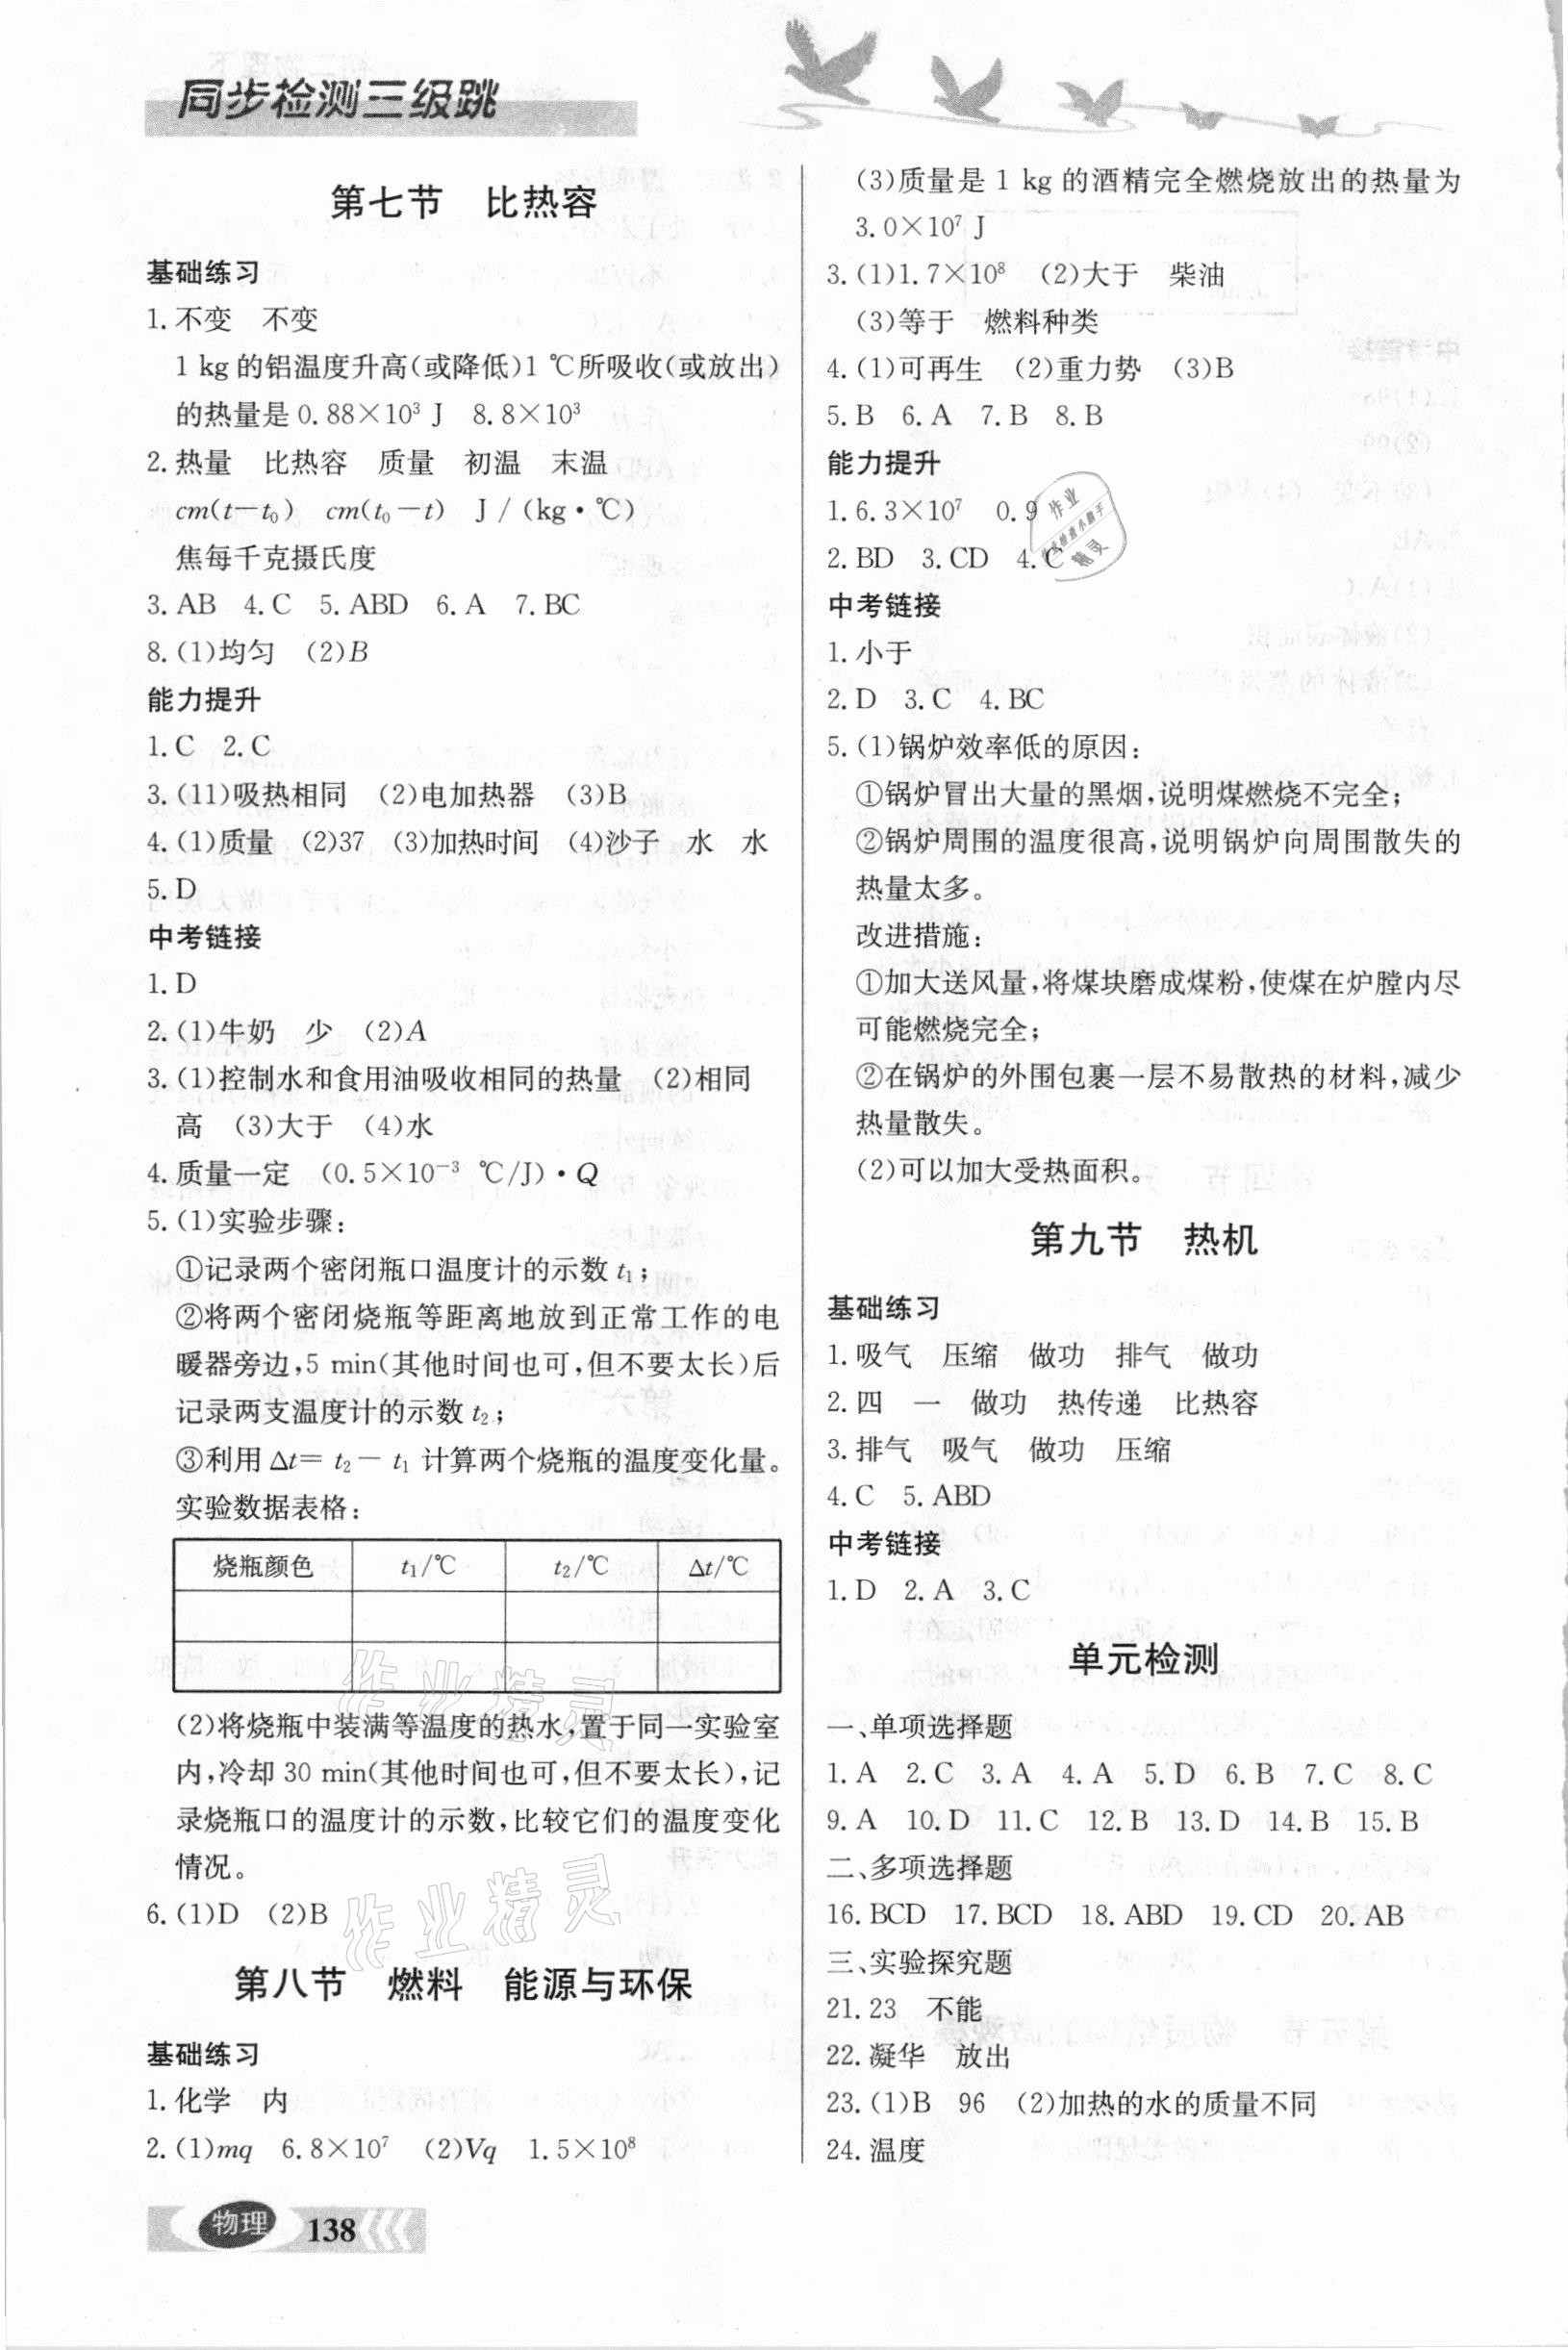 同步检测三级跳
第七节 比热容
基础练习
1.不变 不变
1 kg的铝温度升高(或降低)1 ℃所吸收(或放出)
的热量是0.88×10³ J 8.8×10³
2.热量 比热容 质量 初温 末温
cm(t−t₀) cm(t₀−t) J/(kg·℃)
焦每千克摄氏度
3.AB 4.C 5.ABD 6.A 7.BC
8.(1)均匀 (2)B
能力提升
1.C 2.C
3.(11)吸热相同 (2)电加热器 (3)B
4.(1)质量 (2)37 (3)加热时间 (4)沙子 水 水
5.D
中考链接
1.D
2.(1)牛奶 少 (2)A
3.(1)控制水和食用油吸收相同的热量 (2)相同
高 (3)大于 (4)水
4.质量一定 (0.5×10⁻³ ℃/J)·Q
5.(1)实验步骤:
①记录两个密闭瓶口温度计的示数 t₁;
②将两个密闭烧瓶等距离地放到正常工作的电
暖器旁边,5 min(其他时间也可,但不要太长)后
记录两支温度计的示数 t₂;
③利用 Δt= t₂− t₁ 计算两个烧瓶的温度变化量。
实验数据表格:
烧瓶颜色 t₁/℃ t₂/℃ Δt/℃
(2)将烧瓶中装满等温度的热水,置于同一实验室
内,冷却30 min(其他时间也可,但不要太长),记
录烧瓶口的温度计的示数,比较它们的温度变化
情况。
6.(1)D (2)B
作业精灵
作业精灵
第八节 燃料 能源与环保
基础练习
1.化学 内
2.(1)mq 6.8×10⁷ (2)Vq 1.5×10⁸
(3)质量是1 kg的酒精完全燃烧放出的热量为
3.0×10⁷ J
3.(1)1.7×10⁸ (2)大于 柴油
(3)等于 燃料种类
4.(1)可再生 (2)重力势 (3)B
5.B 6.A 7.B 8.B
能力提升
1.6.3×10⁷ 0.9
2.BD 3.CD 4.C
作业
精灵
中考链接
1.小于
2.D 3.C 4.BC
5.(1)锅炉效率低的原因:
①锅炉冒出大量的黑烟,说明煤燃烧不完全;
②锅炉周围的温度很高,说明锅炉向周围散失的
热量太多。
改进措施:
①加大送风量,将煤块磨成煤粉,使煤在炉膛内尽
可能燃烧完全;
②在锅炉的外围包裹一层不易散热的材料,减少
热量散失。
(2)可以加大受热面积。
第九节 热机
基础练习
1.吸气 压缩 做功 排气 做功
2.四 一 做功 热传递 比热容
3.排气 吸气 做功 压缩
4.C 5.ABD
中考链接
1.D 2.A 3.C
单元检测
一、单项选择题
1.A 2.C 3.A 4.A 5.D 6.B 7.C 8.C
9.A 10.D 11.C 12.B 13.D 14.B 15.B
二、多项选择题
16.BCD 17.BCD 18.ABD 19.CD 20.AB
三、实验探究题
21.23 不能
22.凝华 放出
23.(1)B 96 (2)加热的水的质量不同
24.温度
物理 138